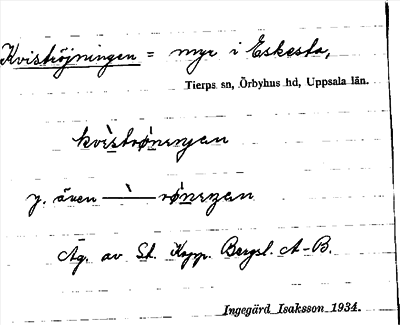 Kviströjningen = myr i Eskesta,
Tierps sn, Örbyhus hd, Uppsala län.
kvi̇̀strø̀neṇgen
y. även —`— rø̀neṇgen
Äg. av St. Kopp. Bergsl. A-B.
Ingegärd Isaksson 1934.